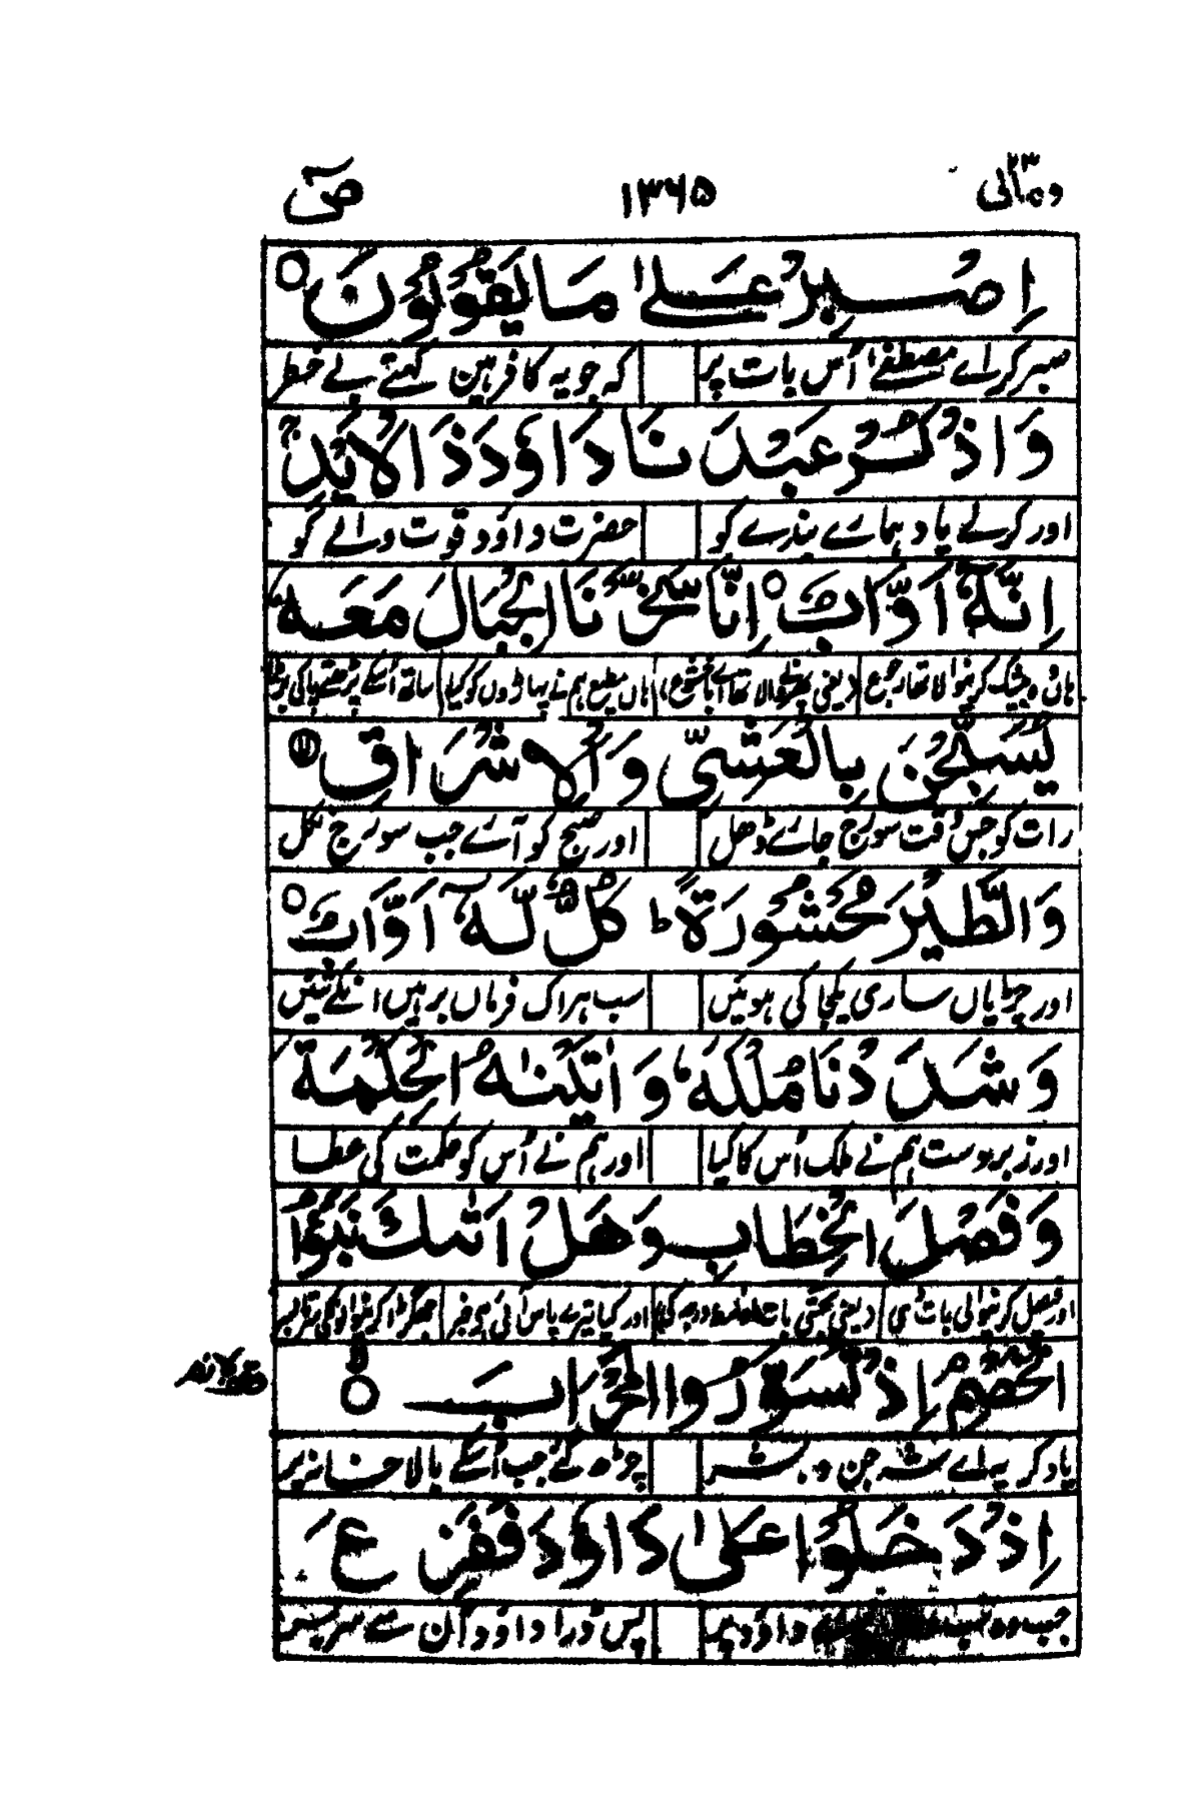 ومالی ۲۳ ۱۳۶۵ صٓ
اِصْبِرْ عَلٰی مَا یَقُوْلُوْنَ ○
صبر کر اے مصطفےٰ اُس بات پر کہ جو یہ کافر ہین کہتے بے خطر
وَاذْكُرْ عَبْدَنَا دَاوٗدَ ذَا الْاَیْدِ ج
اور کرلے یاد ہمارے بندے کو حضرت داوٗد قوت والے کو
اِنَّهٗٓ اَوَّابٌ ○ اِنَّا سَخَّرْنَا الْجِبَالَ مَعَهٗ
ہاں وہ بیشک کرنیوالا تھا رجوع ہاں مطیع ہم نے پہاڑوں کو کیا ساتھ اُسکے
یُسَبِّحْنَ بِالْعَشِیِّ وَالْاِشْرَاقِ
رات کو جس وقت سورج جاے ڈھل اور صبح کو آے جب سورج نکل
وَالطَّیْرَ مَحْشُوْرَةً ط كُلٌّ لَّهٗٓ اَوَّابٌ ○
اور چڑیاں ساری یکجا کی ہوئیں سب ہر اک فرماں بر ہیں انکے تئیں
وَشَدَدْنَا مُلْكَهٗ وَاٰتَیْنٰهُ الْحِكْمَةَ
اور زبردست ہم نے ملک اُس کا کیا اور ہم نے اُس کو حکمت کی عطا
وَفَصْلَ الْخِطَابِ وَهَلْ اَتٰىكَ نَبَؤُا
اور فیصل کرنیوالی بات بھی اور کیا تیرے پاس آئی ہے خبر
الْخَصْمِ اِذْ تَسَوَّرُوا الْمِحْرَابَ ○ لا
یاد کر یہ اے شہ جن و بشر چڑھ گئے جب اُسکے بالا خانہ پر
اِذْ دَخَلُوْا عَلٰی دَاوٗدَ فَفَزِعَ
جب وہ داوٗد پر پس ڈرا داوٗد اُن سے سر بسر